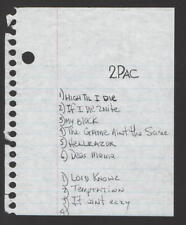 2PAC
1) HIGH TIL I DIE
2) If I DIE 2Nite
3) My Block
4) The GAME Ain't the Same
5) HELLRAZOR
6) DEAR MAMA
1) LORD KNOWZ
2) TEMPTATION
3) It aint easy